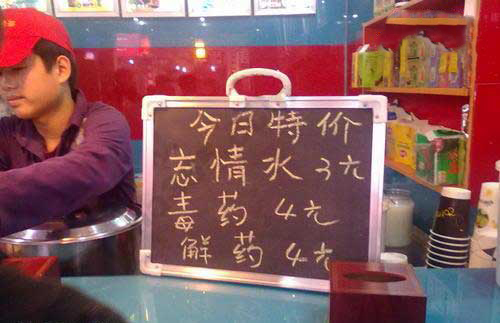 今日特价
忘情水 3元
毒药 4元
解药 4元